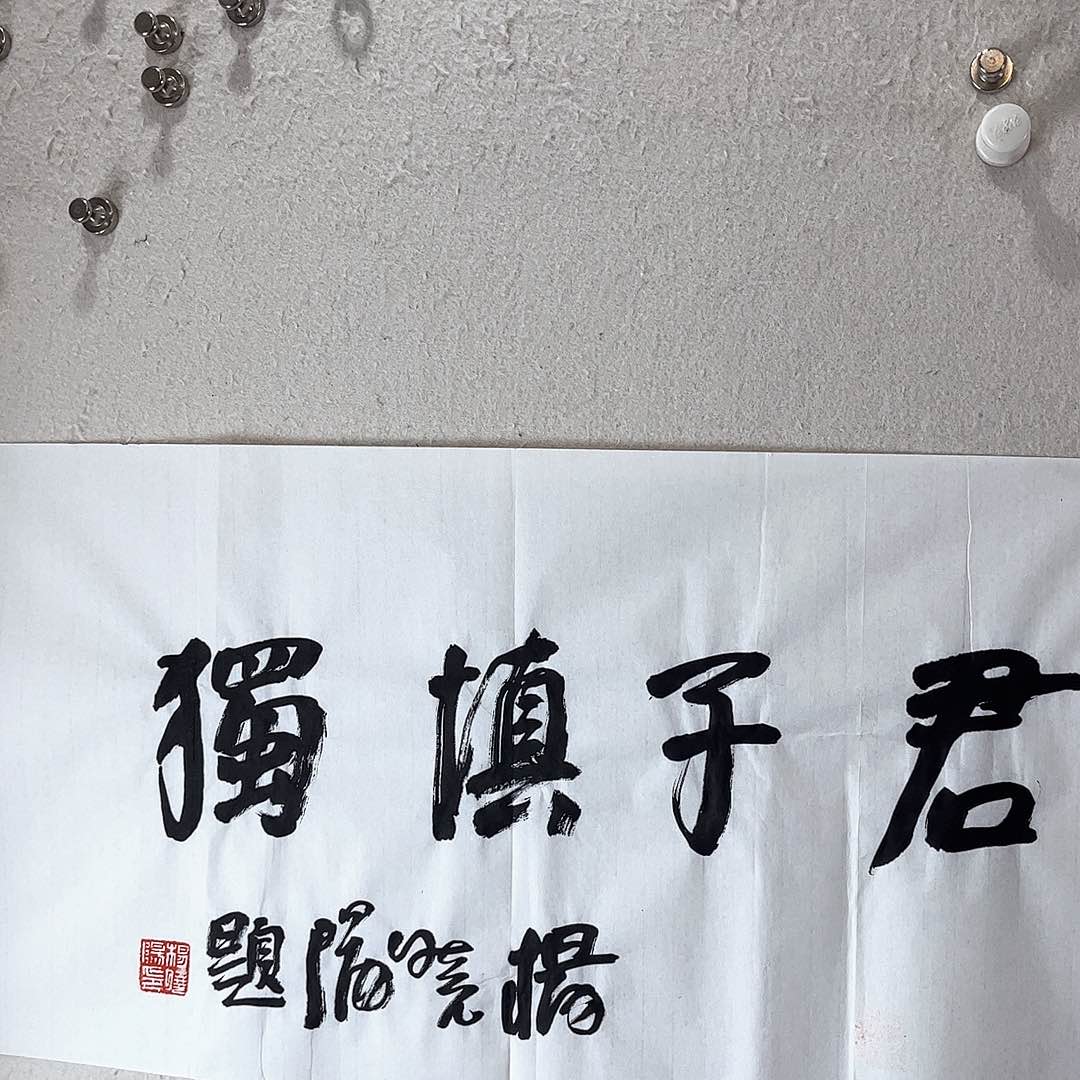 君子慎獨
楊晓陽題
楊曉陽印